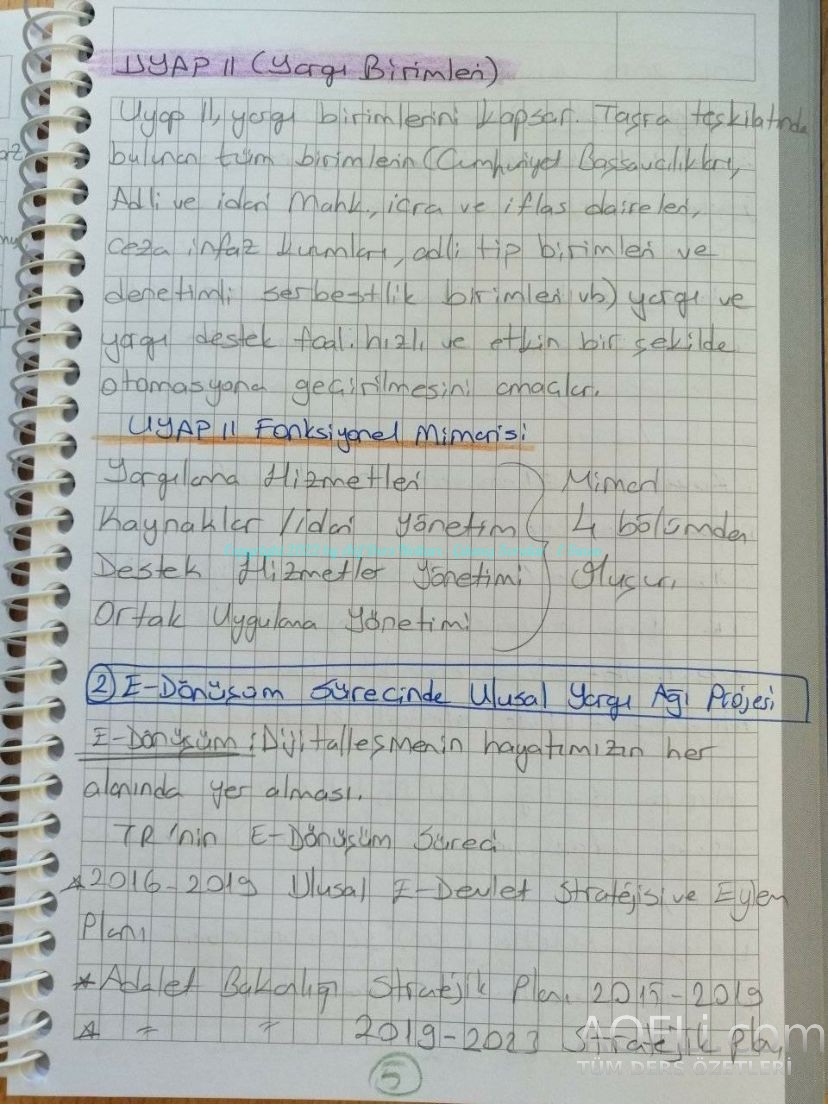 UYAP II (Yargı Birimleri)
Uyap II, yargı birimlerini kapsar. Taşra teşkilatında
bulunan tüm birimlerin (Cumhuriyet Başsavcılıkları,
Adli ve idari Mahk., icra ve iflas daireleri,
ceza infaz kurumları, adli tıp birimleri ve
denetimli serbestlik birimleri vb) yargı ve
yargı destek faal. hızlı ve etkin bir şekilde
otomasyona geçirilmesini amaçlar.
UYAP II Fonksiyonel Mimarisi
Yargılama Hizmetleri
Kaynaklar / idari yönetim
Destek Hizmetler Yönetimi
Ortak Uygulama Yönetimi
Mimari
4 bölümden
Oluşur.
2 E-Dönüşüm Sürecinde Ulusal Yargı Ağı Projesi
E-Dönüşüm : Dijitalleşmenin hayatımızın her
alanında yer alması.
TR'nin E-Dönüşüm Süreci
* 2016-2019 Ulusal E-Devlet Stratejisi ve Eylem
Planı
* Adalet Bakanlığı Stratejik Planı 2015-2019
* " " 2019-2023 Stratejik Pla
5
AOFLi.com
TÜM DERS ÖZETLERİ